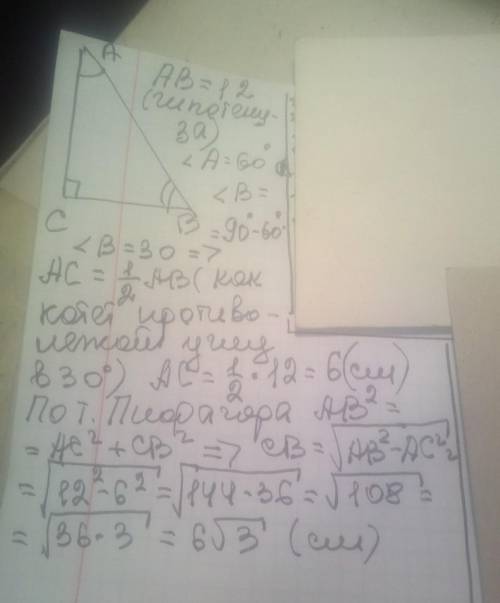 A
AB = 12
(гипотену-
за)
<A = 60°
<B =
= 90° - 60°
C
B
<B = 30 =>
AC = 1/2 AB (как
катет противо-
лежащий углу
в 30°) AC = 1/2 · 12 = 6 (см)
По т. Пифагора AB² =
= AC² + CB² => CB = √AB² - AC² =
= √12² - 6² = √144 - 36 = √108 =
= √36 · 3 = 6√3 (см)